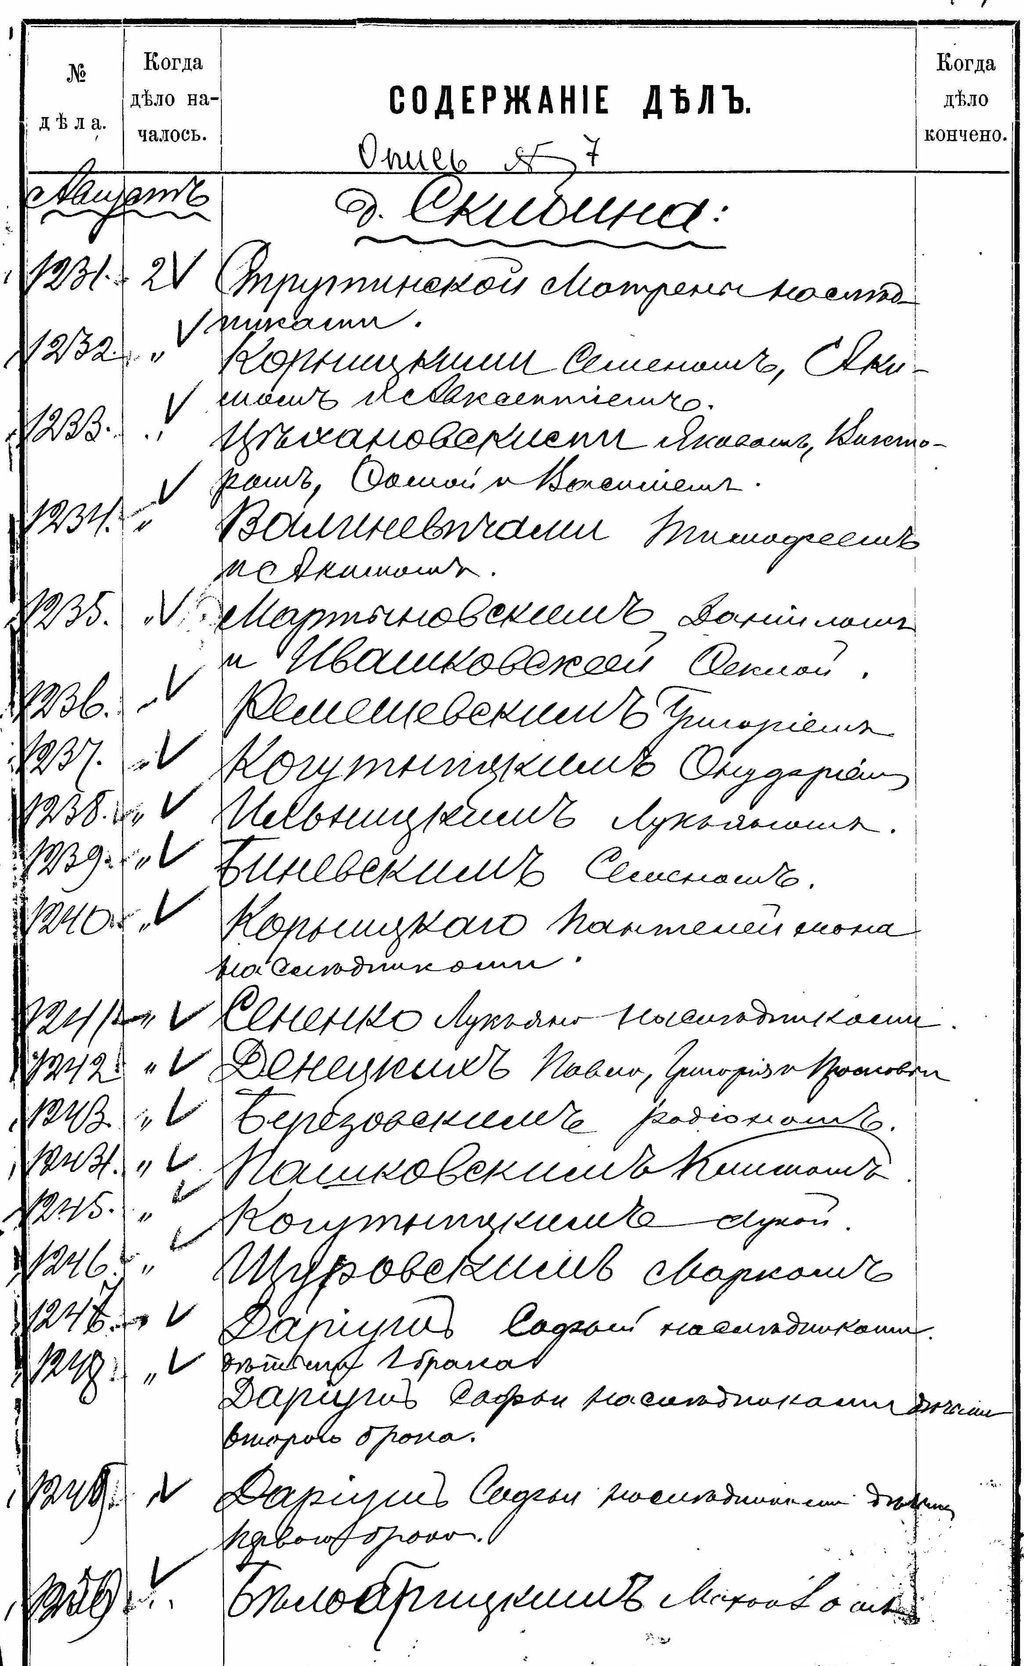 № дѣла.
Когда дѣло на-чалось.
СОДЕРЖАНІЕ ДѢЛЪ.
Когда дѣло кончено.
Опись № 7
Августъ
д. Скибина:
1231. 2 √ Струтинской Матрены наслѣд-
никами.
1232. " √ Корницкими Семеномъ, Яки-
момъ и Авксентіемъ.
1233. " √ Цѣхановскими Яковомъ, Викто-
ромъ, Фомой и Василіемъ.
1234. " √ Валиневичами Тимофеемъ
и Якимомъ.
1235. " √ Мартыновскимъ Даніиломъ
и Ивашковской Феклой.
1236. " √ Ремешевскимъ Григоріемъ
1237. " √ Когутницкимъ
1238. " √ Ильницкимъ Лукьяномъ.
1239. " √ Биневскимъ Семеномъ.
1240. " √ Корницкаго Пантелеймона
наслѣдниками.
1241. " √ Сененко Лукьяна наслѣдниками.
1242. " √ Денецкихъ Павла, Григорія и
1243. " √ Березовскимъ Родіономъ.
1244. " √ Пашковскимъ Климомъ.
1245. " √ Когутницкимъ Лукой.
1246. " √ Щуровскимъ Маркомъ
1247. " √ Софьи наслѣдниками.
1248. " √ дѣтьми 1 брака
Софьи наслѣдниками дѣтьми
второго брака.
1249. " √ Софьи наслѣдниками дѣтьми
первого брака.
√ Бѣлобрицкимъ